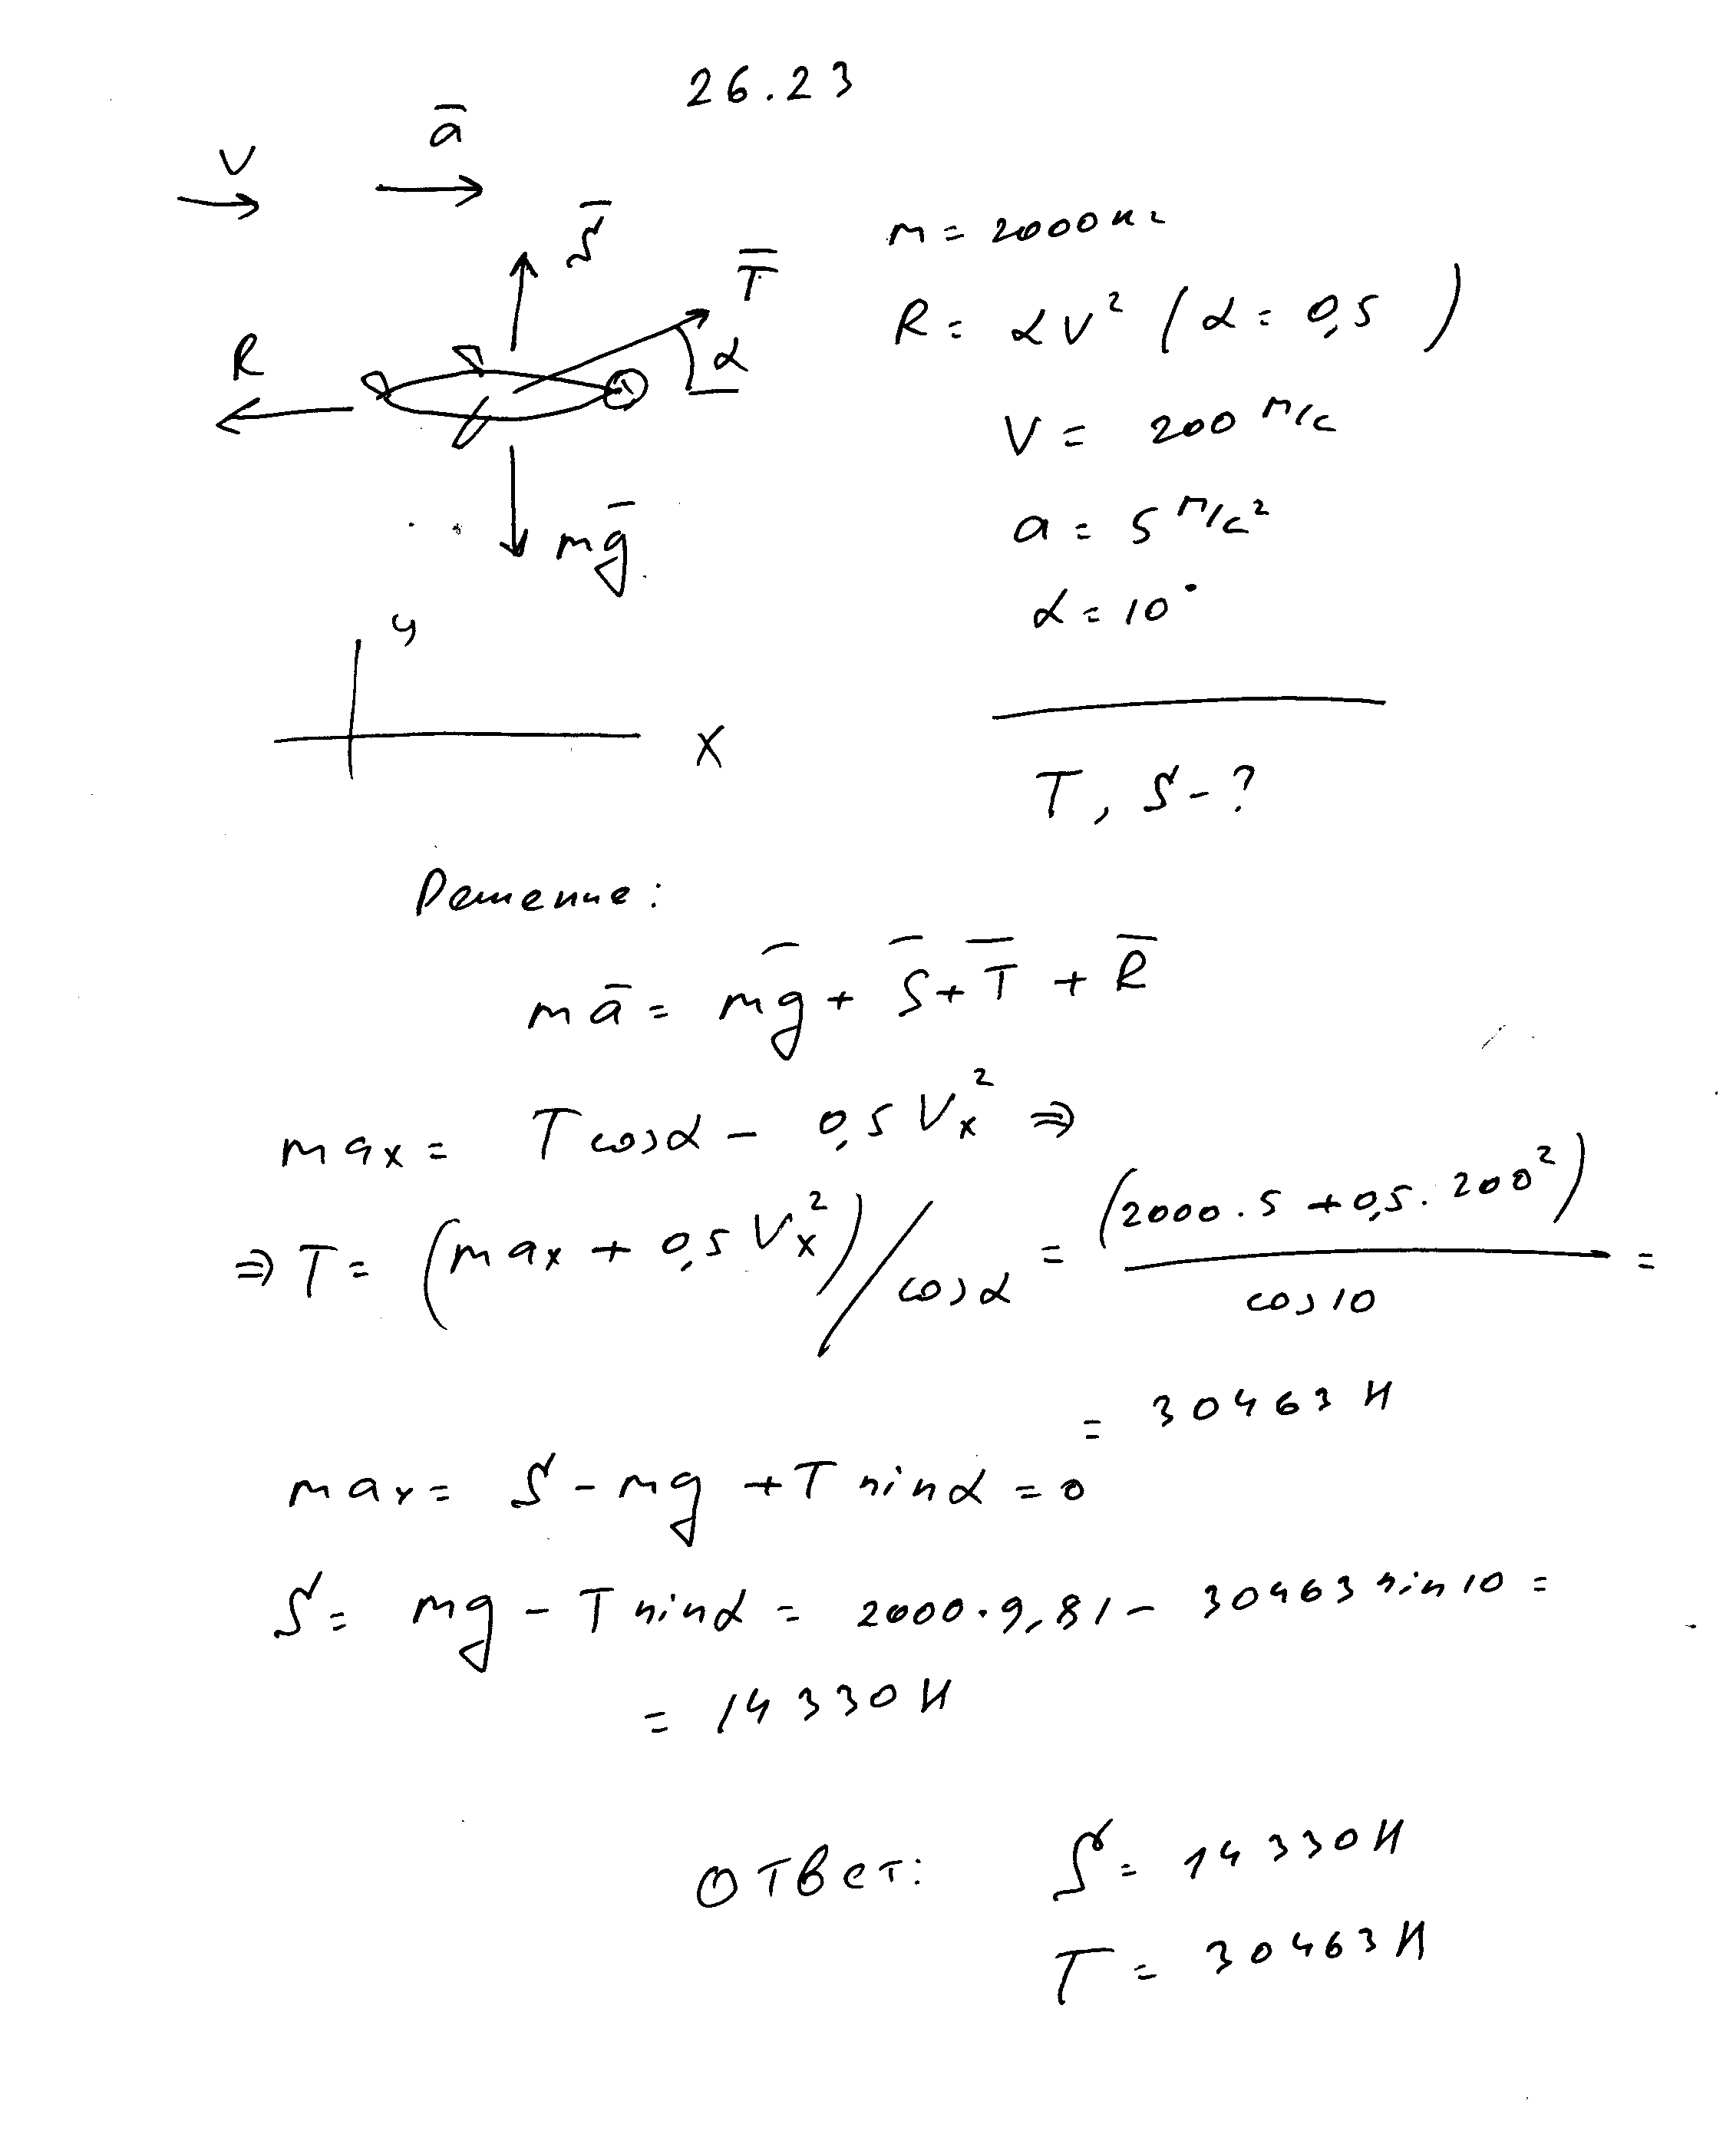 26.23
V
a̅
S̅
T̅
R
α
mg̅
y
x
m = 2000 кг
R = αV² (α = 0,5)
V = 200 м/с
a = 5 м/с²
α = 10°
T, S - ?
Решение:
ma̅ = mg̅ + S̅ + T̅ + R̅
max = T cosα - 0,5 Vx² ⇒
⇒ T = (max + 0,5 Vx²) / cosα = (2000 · 5 + 0,5 · 200²) / cos 10 =
= 30463 Н
may = S - mg + T sinα = 0
S = mg - T sinα = 2000 · 9,81 - 30463 sin 10 =
= 14330 Н
Ответ: S = 14330 Н
T = 30463 Н